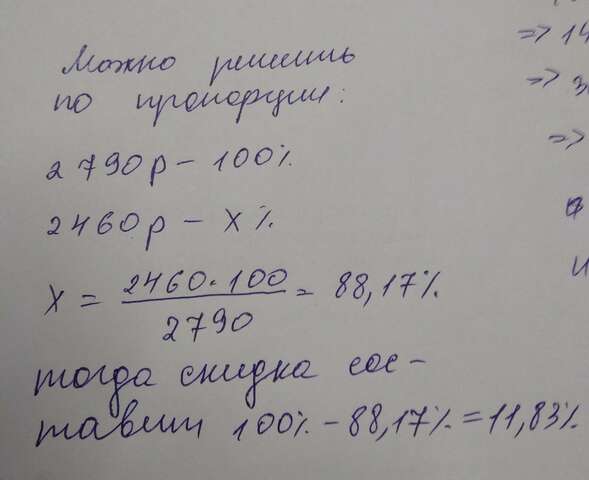 Можно решить
по пропорции:
2790р – 100%
2460р – x%
x = 2460·100 / 2790 = 88,17%
тогда скидка сос-
тавит 100% – 88,17% = 11,83%
=> 14
=>
=>